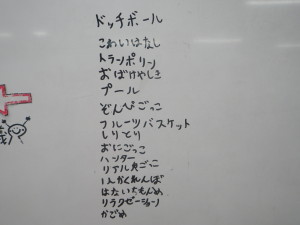 ドッチボール
こわいはなし
トランポリン
おばけやしき
プール
ぞんびごっこ
フルーツバスケット
しりとり
おにごっこ
ハンター
リアル鬼ごっこ
いんかくれんぼ
はないちもんめ
リラクゼーション
かごめ